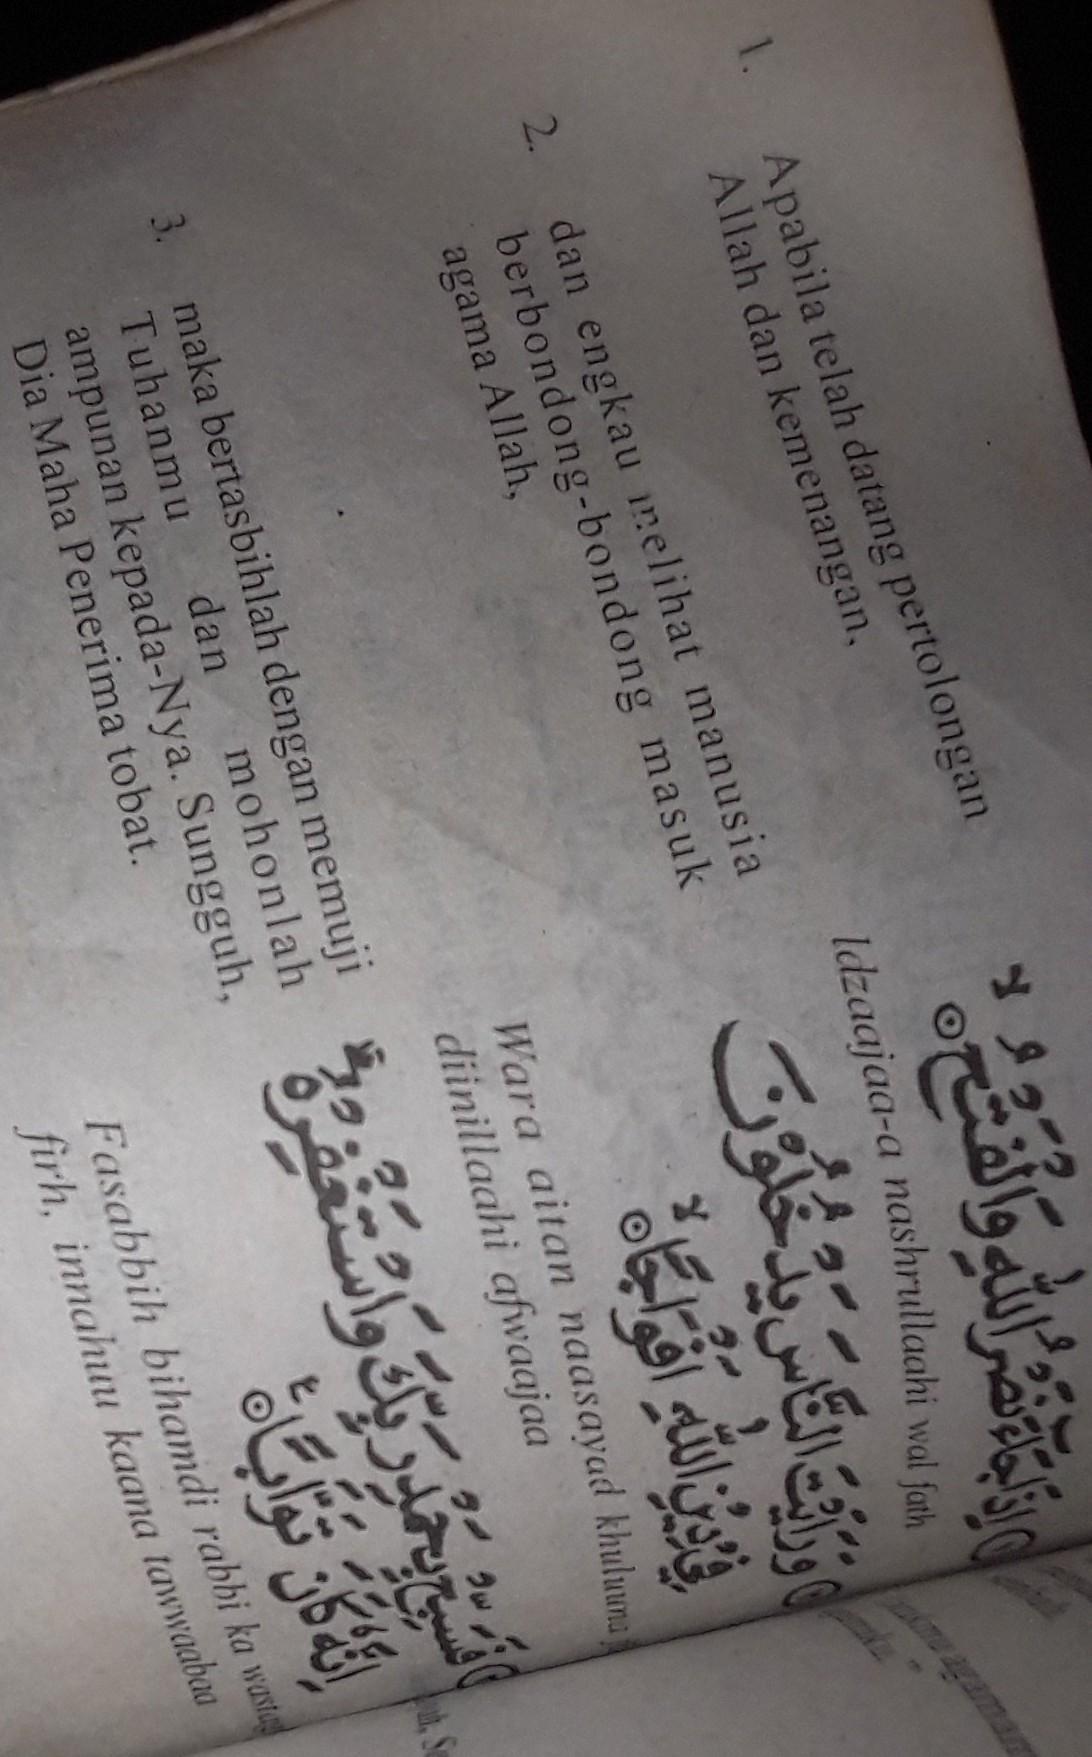 1. Apabila telah datang pertolongan
Allah dan kemenangan,
اِذَا جَاۤءَ نَصْرُ اللّٰهِ وَالْفَتْحُ ۙ
Idzaajaa-a nashrullaahi wal fath
2. dan engkau melihat manusia
berbondong-bondong masuk
agama Allah,
وَرَاَيْتَ النَّاسَ يَدْخُلُوْنَ
فِيْ دِيْنِ اللّٰهِ اَفْوَاجًا ۙ
Wara aitan naasayad khuluuna
diinillaahi afwaajaa
3. maka bertasbihlah dengan memuji
Tuhanmu dan mohonlah
ampunan kepada-Nya. Sungguh,
Dia Maha Penerima tobat.
فَسَبِّحْ بِحَمْدِ رَبِّكَ وَاسْتَغْفِرْهُ ۗ
اِنَّهٗ كَانَ تَوَّابًا ࣖ
Fasabbih bihamdi rabbi ka wastagh
firh, innahuu kaana tawwaabaa